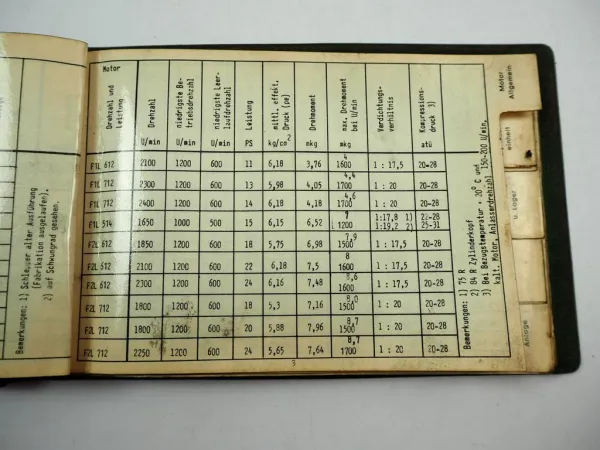 Bemerkungen: 1) Schlepper alter Ausführung
(Fabrikation ausgelaufen).
2) auf Schwungrad gesehen.
Motor
Drehzahl und
Leistung
Drehzahl
U/min
niedrigste Be-
triebsdrehzahl
U/min
niedrigste Leer-
laufdrehzahl
U/min
Leistung
PS
mittl. effekt.
Druck (pe)
kg/cm2
Drehmoment
mkg
max. Drehmoment
bei U/min
mkg
Verdichtungs-
verhältnis
Kompressions-
druck 3)
atü
F1L 612 2100 1200 600 11 6,18 3,76 4 1600 1 : 17,5 20-28
F1L 712 2300 1200 600 13 5,98 4,05 4,4 1700 1 : 20 20-28
F1L 712 2400 1200 600 14 6,18 4,18 4,6 1700 1 : 20 20-28
F1L 514 1650 1000 500 15 6,15 6,52 7 1200 1:17,8 1) 22-28
1:19,2 2) 25-31
F2L 612 1850 1200 600 18 5,75 6,98 7,9 1500 1 : 17,5 20-28
F2L 612 2100 1200 600 22 6,18 7,5 8 1600 1 : 17,5 20-28
F2L 612 2300 1200 600 24 6,16 7,48 8,6 1600 1 : 17,5 20-28
F2L 712 1800 1200 600 18 5,3 7,16 8,0 1500 1 : 20 20-28
F2L 712 1800 1200 600 20 5,88 7,96 8,7 1500 1 : 20 20-28
F2L 712 2250 1200 600 24 5,65 7,64 8,7 1700 1 : 20 20-28
Bemerkungen: 1) 75 R
2) 84 R Zylinderkopf
3) Bei Bezugstemperatur + 20° C und
kalt. Motor, Anlasserdrehzahl 150-200 U/min.
3
Motor
Allgemein
einheit
u. Lager
Anlage